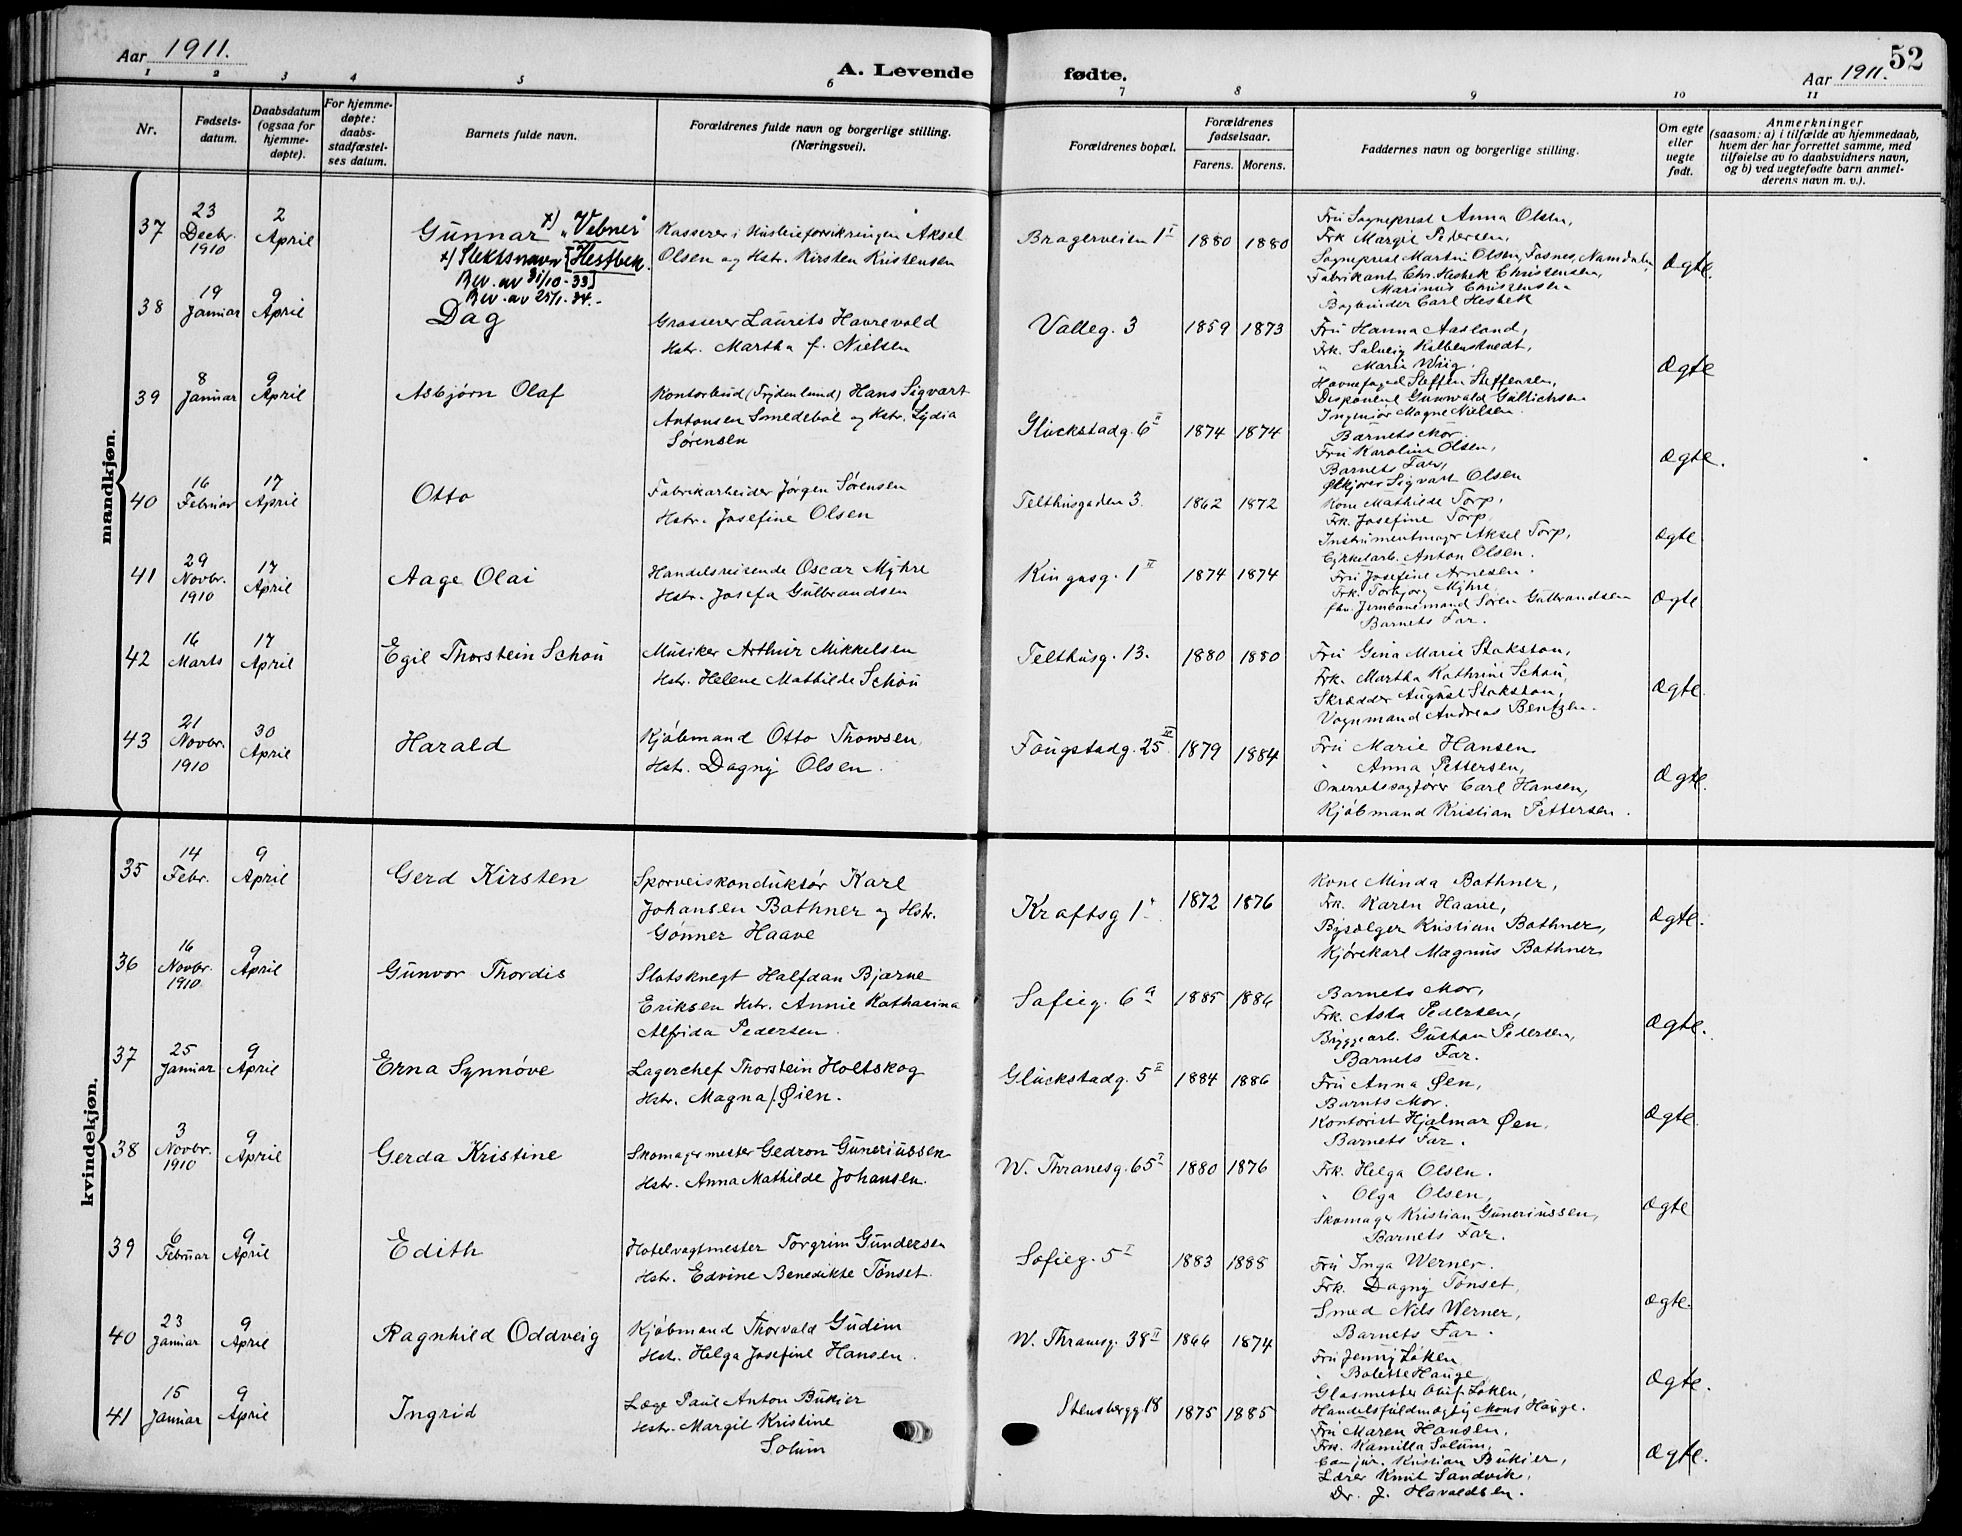 Aar 1911.
A. Levende fødte.
Aar 1911.
52
1 2 3 4 5 6 7 8 9 10 11
Nr.
Fødsels-
datum.
Daabsdatum
(ogsaa for
hjemme-
døpte).
For hjemme-
døpte:
daabs-
stadfæstel-
ses datum.
Barnets fulde navn.
Forældrenes fulde navn og borgerlige stilling.
(Næringsvei).
Forældrenes bopæl.
Forældrenes
fødselsaar.
Farens. Morens.
Faddernes navn og borgerlige stilling.
Om egte
eller
uegte
født.
Anmerkninger
(saasom: a) i tilfælde av hjemmedaab,
hvem der har forrettet samme, med
tilføielse av to daabsvidners navn,
og b) ved uegtefødte barn anmel-
derens navn m. v.).
mandkjøn.
37
23
Decbr.
1910
2
April
Gunnar x) "Vebner"
x) Slektsnavn [Hestbek.
Bev. av 31/10-33]
Bev. av 25/1-34.-
Kasserer i Husleieforsikringen Aksel
Olsen og Hstr. Kirsten Kristensen
Bragerveien 1 I
1880 1880
Fru Sogneprest Anna Olsen,
Frk Margit Pedersen,
Sogneprest Martin Olsen, Fosnes, Namdalen,
Fabrikant Chr. Hesbek Christensen,
" Marinus Christensen
Bogbinder Carl Hesbek
Ægte.
38
19
Januar
9
April
Dag
Grosserer Laurits Havrevold
Hstr. Martha f. Nielsen
Valleg. 3
1859 1873
Fru Hanna Aasland,
Frk. Solveig Kalbenstvedt,
" Marie Wiig.
Havnefoged Steffen Steffensen,
Disponent Gunwald Gullichsen
Ingeniør Magne Nielsen.
Ægte
39
8
Januar
9
April
Asbjørn Olaf
Kontorbud (Frydenlund) Hans Sigvart
Antonsen Smedebøl og Hstr. Lydia
Sørensen
Glückstadg. 6 II
1874 1874
Barnets Mor.
Fru Karoline Olsen,
Barnets Far,
Ølkjører Sigvart Olsen
Ægte.
40
16
Februar
17
April
Otto
Fabrikarbeider Jørgen Sørensen
Hstr. Josefine Olsen
Telthusgaden 3.
1862 1872
Kone Mathilde Torp,
Frk. Josefine Torp,
Instrumentmager Aksel Torp,
Cykkelarb. Anton Olsen.
Ægte
41
29
Novbr.
1910
17
April
Aage Olai
Handelsreisende Oscar Myhre
Hstr. Josefa Gulbrandsen
Kingosg. 1 II
1874 1874
Fru Josefine Arnesen.
Frk. Torbjørg Myhre,
fhv. Jernbanemand Søren Gulbrandsen
Barnets Far.
Ægte
42
16
Marts
17
April
Egil Thorstein Schou
Musiker Arthur Mikkelsen
Hstr. Helene Mathilde Schou
Telthusg. 13.
1880 1880
Fru Gina Marie Stokston,
Frk. Martha Kathrine Schou,
Skrædder August Stokston,
Vognmand Andreas Bentzen.
Ægte.
43
21
Novbr.
1910
30
April
Harald
Kjøbmand Otto Thowsen,
Hstr. Dagny Olsen.
Fougstadg. 25 III
1879 1884
Fru Marie Hansen
" Anna Pettersen,
Overretssagfører Carl Hansen,
Kjøbmand Kristian Pettersen.
Ægte.
kvindekjøn.
35
14
Febr.
9
April
Gerd Kirsten
Sporveiskonduktør Karl
Johansen Bothner og Hstr.
Gonner Haave
Kraftsg 1
1872 1876
Kone Minda Bothner,
Frk. Karen Haave,
Bysælger Kristian Bothner,
Kjørekarl Magnus Bothner
Ægte.
36
16
Novbr.
1910
9
April
Gunvor Thordis
Slotsknegt Halfdan Bjarne
Eriksen Hstr. Annie Katharina
Alfrida Pedersen.
Sofieg. 6a
1885 1886
Barnets Mor,
Frk. Asta Pedersen,
Byggearb. Gustav Pedersen,
Barnets Far.
Ægte.
37
25
Januar
9
April
Erna Synnøve
Lagerchef Thorstein Holtskog
Hstr. Magna f. Øien.
Glückstadg. 5 II
1884 1886
Fru Anna Øen,
Barnets Mor.
Kontorist Hjalmar Øen,
Barnets Far.
Ægte
38
3
Novbr.
1910
9
April
Gerda Kristine
Skomagermester Gedron Guneriussen
Hstr. Anna Mathilde Johansen.
W. Thranesg. 65 I
1880 1876
Frk. Helga Olsen.
" Olga Olsen,
Skomager Kristian Guneriussen,
Barnets Far.
Ægte
39
6
Februar
9
April
Edith
Hotelvagtmester Torgrim Gundersen
Hstr. Edvine Benedikte Tønset.
Sofieg. 5 I
1883 1888
Fru Inga Werner.
Frk. Dagny Tønset,
Smed Nils Werner,
Barnets Far.
Ægte.
40
23
Januar
9
April
Ragnhild Oddveig
Kjøbmand Thorvald Gudim
Hstr. Helga Josefine Hansen.
W. Thranesg. 38 II
1866 1874
Fru Jenny Løken
" Bolette Hauge,
Glasmester Oluf Løken,
Handelsfuldmægtig Mons Hauge.
Ægte.
41
15
Januar
9
April
Ingrid
Læge Paul Anton Bukier
Hstr. Margit Kristine
Solum
Stensbergg 18
1875 1885
Fru Maren Hansen,
Frk. Kamilla Solum,
Can. jur. Kristian Bukier,
Lærer Knut Sandvik,
Dr. J. Havaldsen.
Ægte.